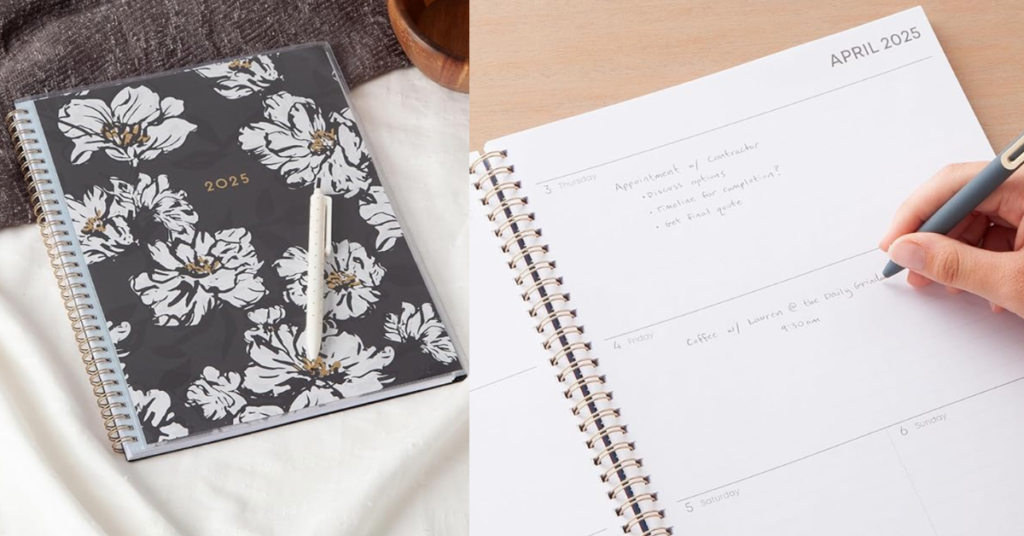 2025
APRIL 2025
3 Thursday
Appointment w/ Contractor
• Discuss options
• Timeline for completion?
• Get final quote
4 Friday
Coffee w/ Lauren @ the Daily Grind
9:30am
5 Saturday
6 Sunday